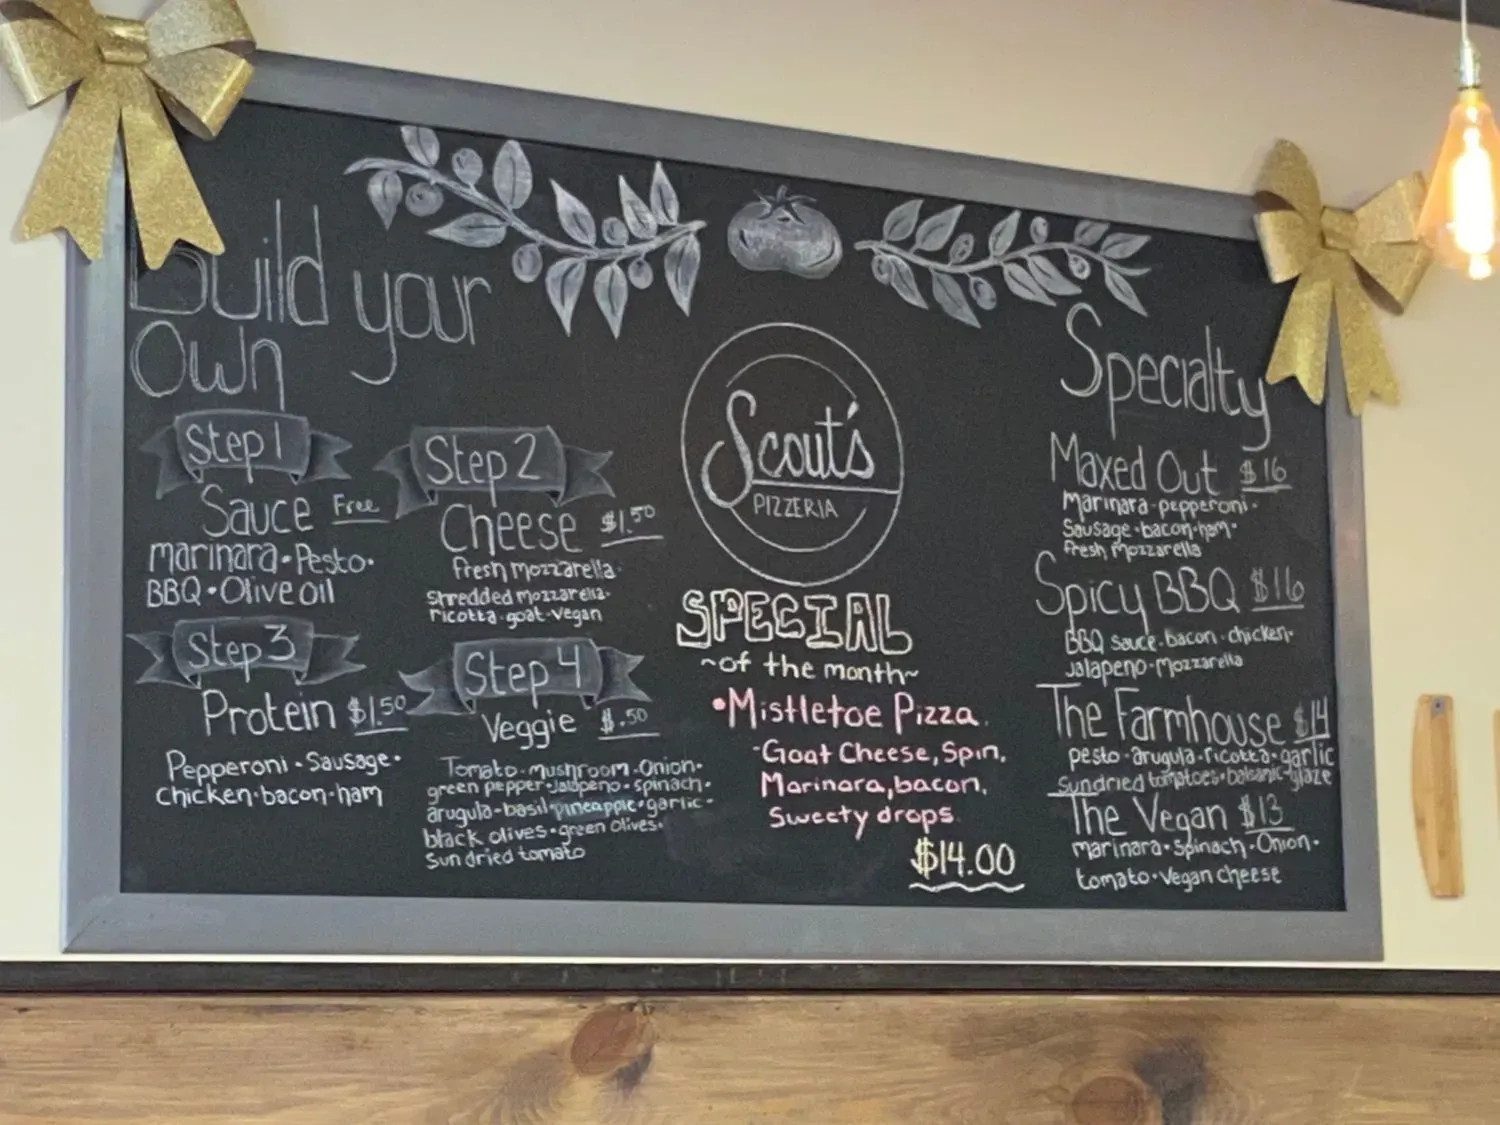 Build your
Own
Step 1
Sauce Free
marinara • Pesto •
BBQ • Olive oil
Step 2
Cheese $1.50
fresh mozzarella •
Shredded mozzarella •
ricotta • goat • vegan
Step 3
Protein $1.50
Pepperoni • Sausage •
Chicken • bacon • ham
Step 4
Veggie $.50
Tomato • mushroom • Onion •
green pepper • Jalapeno • spinach •
arugula • basil • pineapple • garlic •
black olives • green olives •
Sun dried tomato
Scout's
PIZZERIA
SPECIAL
~of the month~
• Mistletoe Pizza
- Goat Cheese, Spin,
Marinara, bacon,
Sweety drops
$14.00
Specialty
Maxed Out $16
Marinara • pepperoni •
Sausage • bacon • ham •
fresh mozzarella
Spicy BBQ $16
BBQ Sauce • bacon • chicken •
Jalapeno • Mozzarella
The Farmhouse $14
pesto • arugula • ricotta • garlic
sundried tomatoes • balsamic glaze
The Vegan $13
marinara • spinach • Onion •
tomato • Vegan cheese